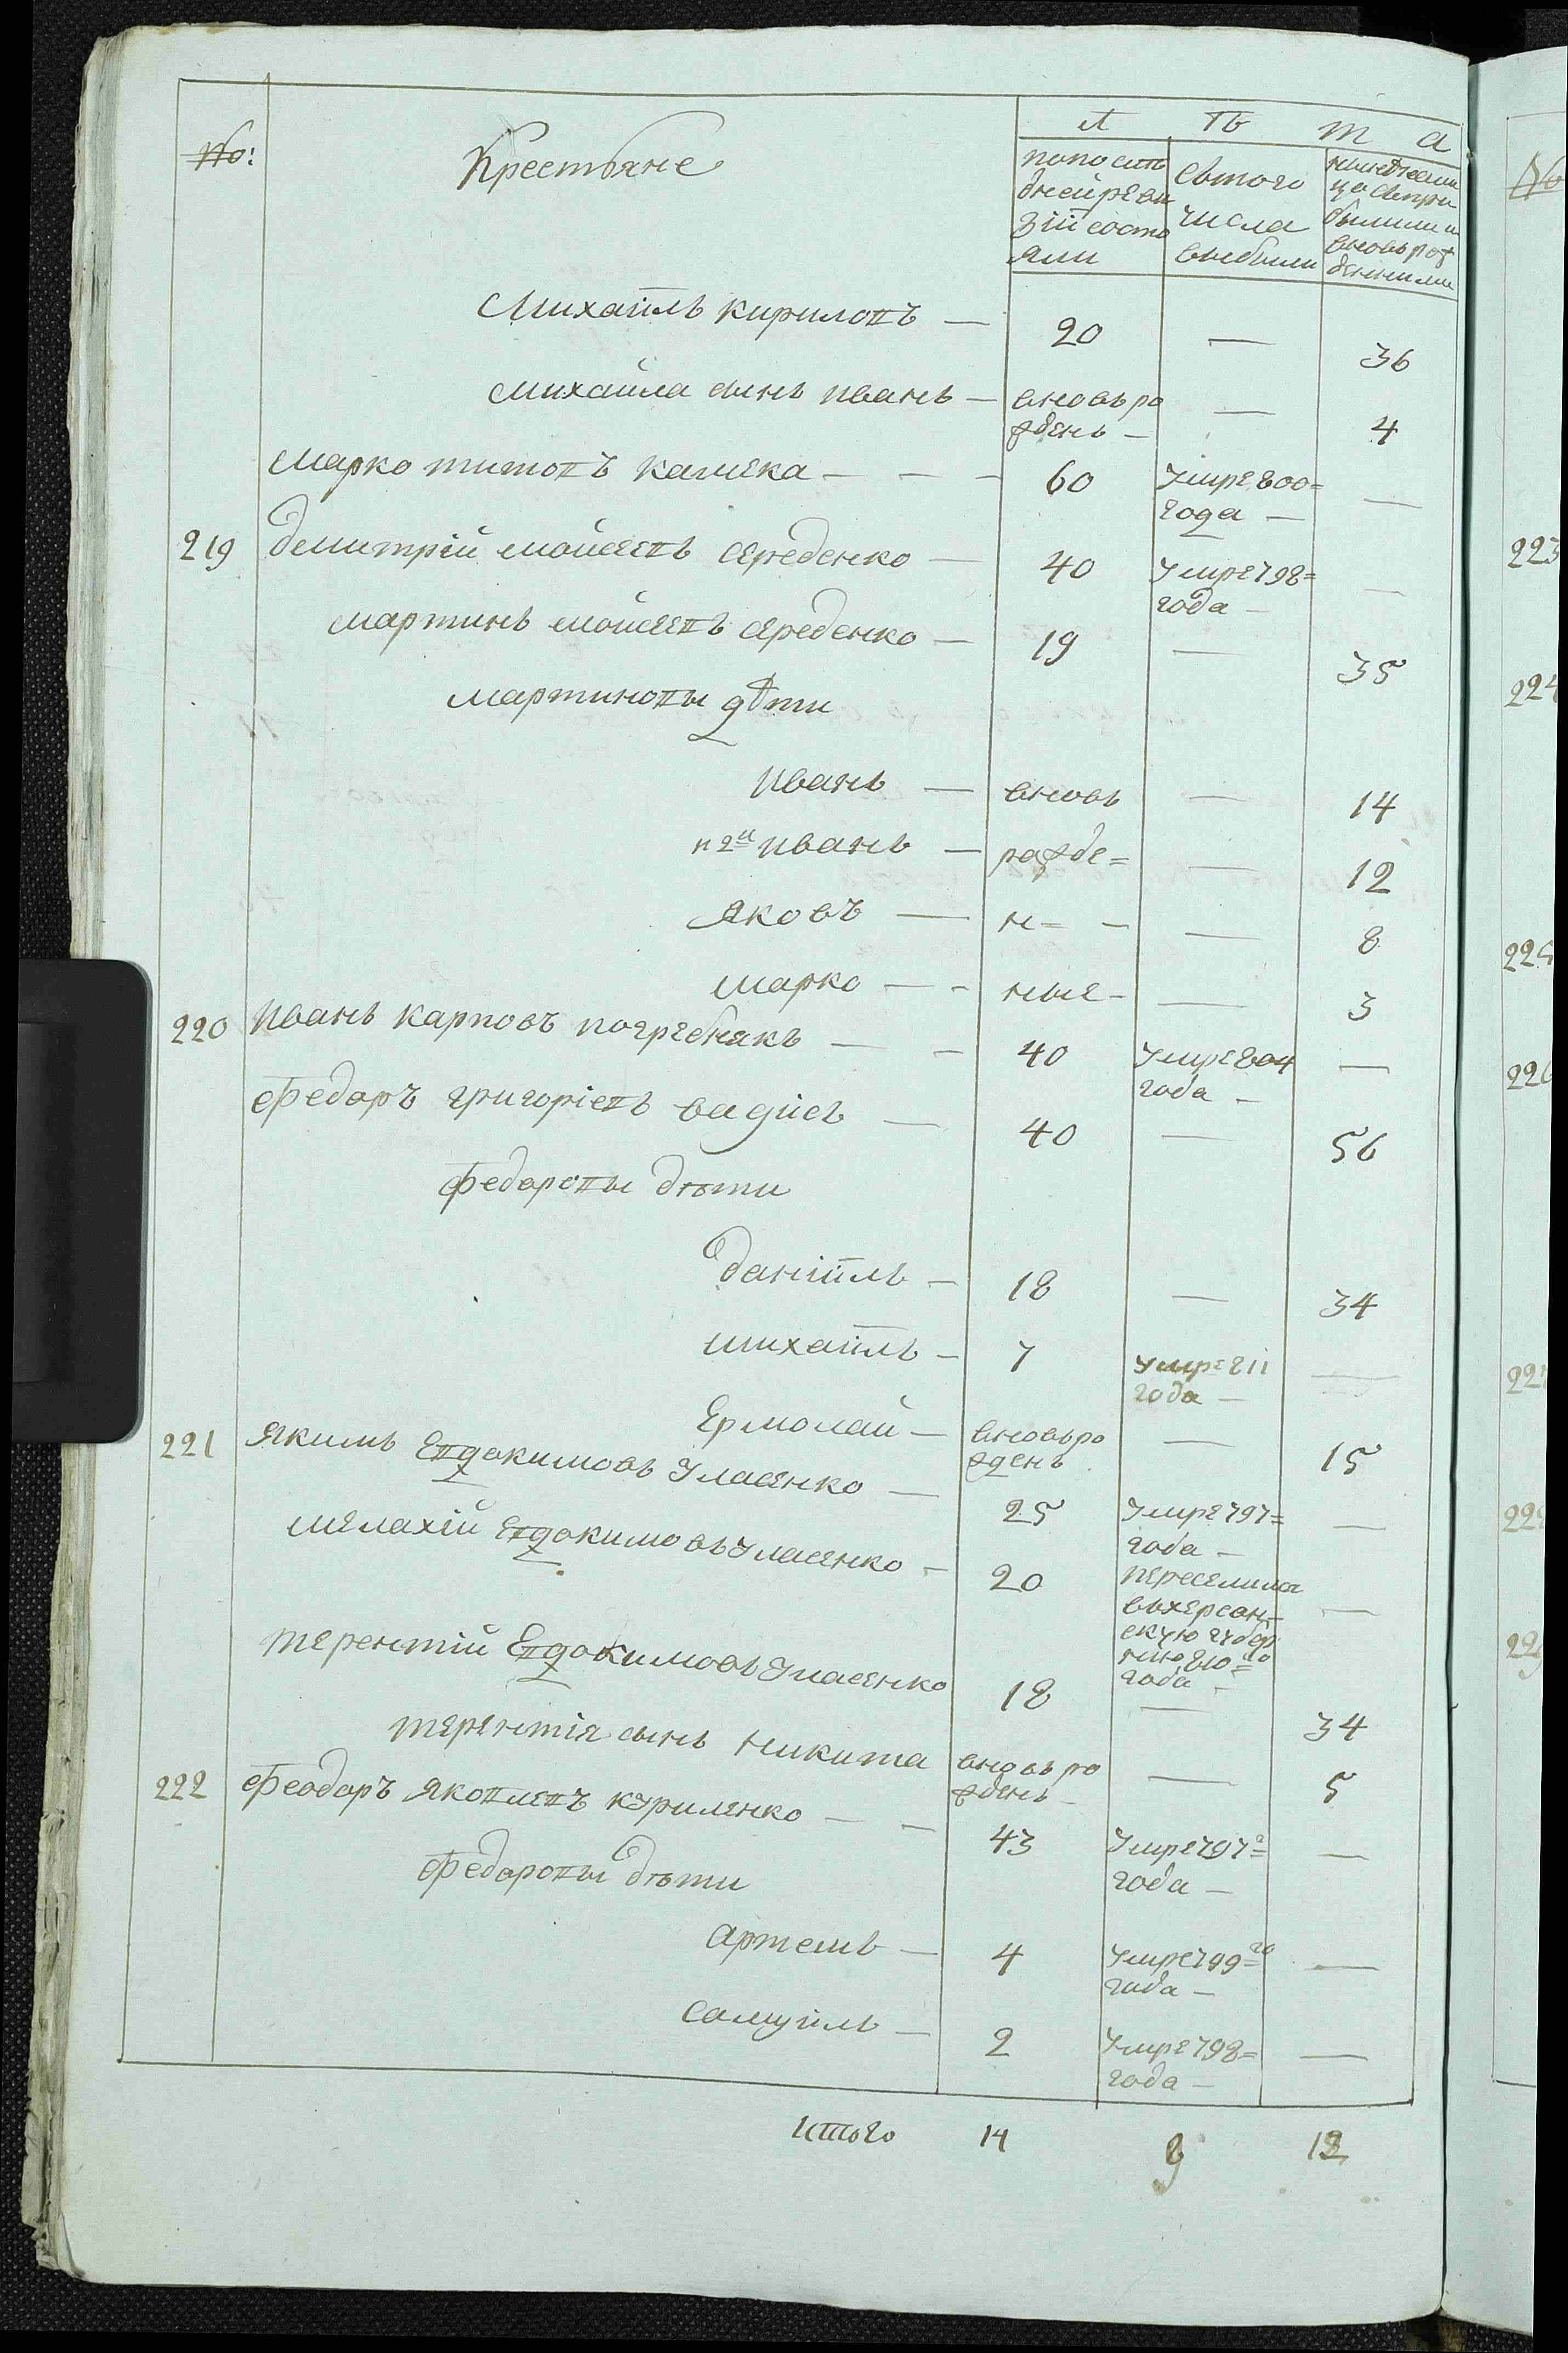 №: Крестьяне
Л ѣ т а
по послѣ
дней реви
зіи состо
яли
Съ того
числа
выбыли
нынѣ на ли
цо съ при
былыми и
вновь рож
денными
Михаилъ Кириловъ — 20 — 36
Михаила сынъ Иванъ — вновь ро
жденъ — — 4
Марко Титовъ Камека — — — 60 умре 800=
года — —
219 Дмитрій Мойсеевъ Середенко — 40 умре 798=
года — —
Мартинъ Мойсеевъ Середенко — 19 — 35
Мартиновы дѣти
Иванъ — вновь — 14
и 2й Иванъ — рожде= — 12
Яковъ — н= — — 8
Марко — — ные — — 3
220 Иванъ Карповъ Погребнякъ — — 40 умре 804
года — —
Федоръ Григоріевъ — 40 — 56
Федоровы дѣти
Даніилъ — 18 — 34
Михаилъ — 7 умре 811
года — —
Ермолай — вновь ро
жденъ — 15
221 Якимъ Евдокимовъ Уласенко — 25 умре 797=
года — —
Малахій Евдокимовъ Уласенко — 20 переселился
въ херсон=
скую губер
нію 810=го
года — —
Терентій Евдокимовъ Уласенко 18 — 34
Терентія сынъ Никита вновь ро
жденъ — — 5
222 Феодоръ Яковлевъ Куриленко — — 43 умре 797=
года — —
Федоровы дѣти
Артемъ — 4 умре 799=го
года — —
Самуилъ — 2 умре 798=
года — —
Итого 14 12
№
223
224
225
226
227
228
229